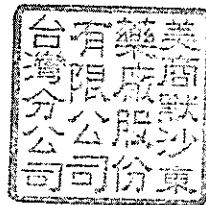 美商默沙東
藥廠股份
有限公司
台灣分公司